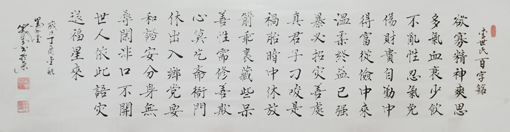 李世民百字銘
欲寡精神爽思
多氣血衰少飲
不亂性忍氣免
傷財貴自勤中
得富從儉中來
溫柔終益己强
暴必招灾善處
真君子刁唆是
禍胎暗中休放
箭乖裏藏些呆
養性需修善欺
心莫吃斋衙門
休出入鄉黨要
和諧安分身無
辱閑非口不開
世人依此語灾
退福星來